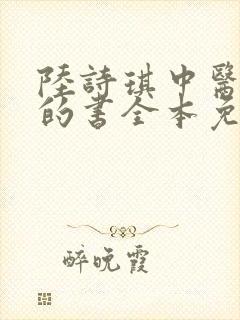 陸詩琪中醫
的書全本免
醉晚霞